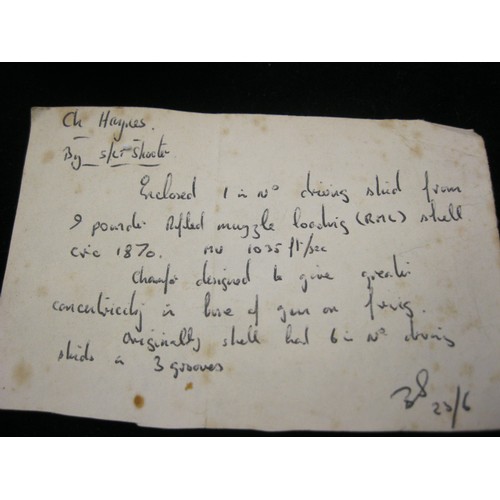 Ch Haynes.
By
Enclosed 1 in Nº driving stud from
9 pounder Rifled muzzle loading (RML) shell
circ 1870. MV 1035 ft/sec
Chamfer designed to give greater
concentricity in bore of gun on firing.
Originally shell had 6 in Nº driving
studs in 3 grooves
BS 23/6